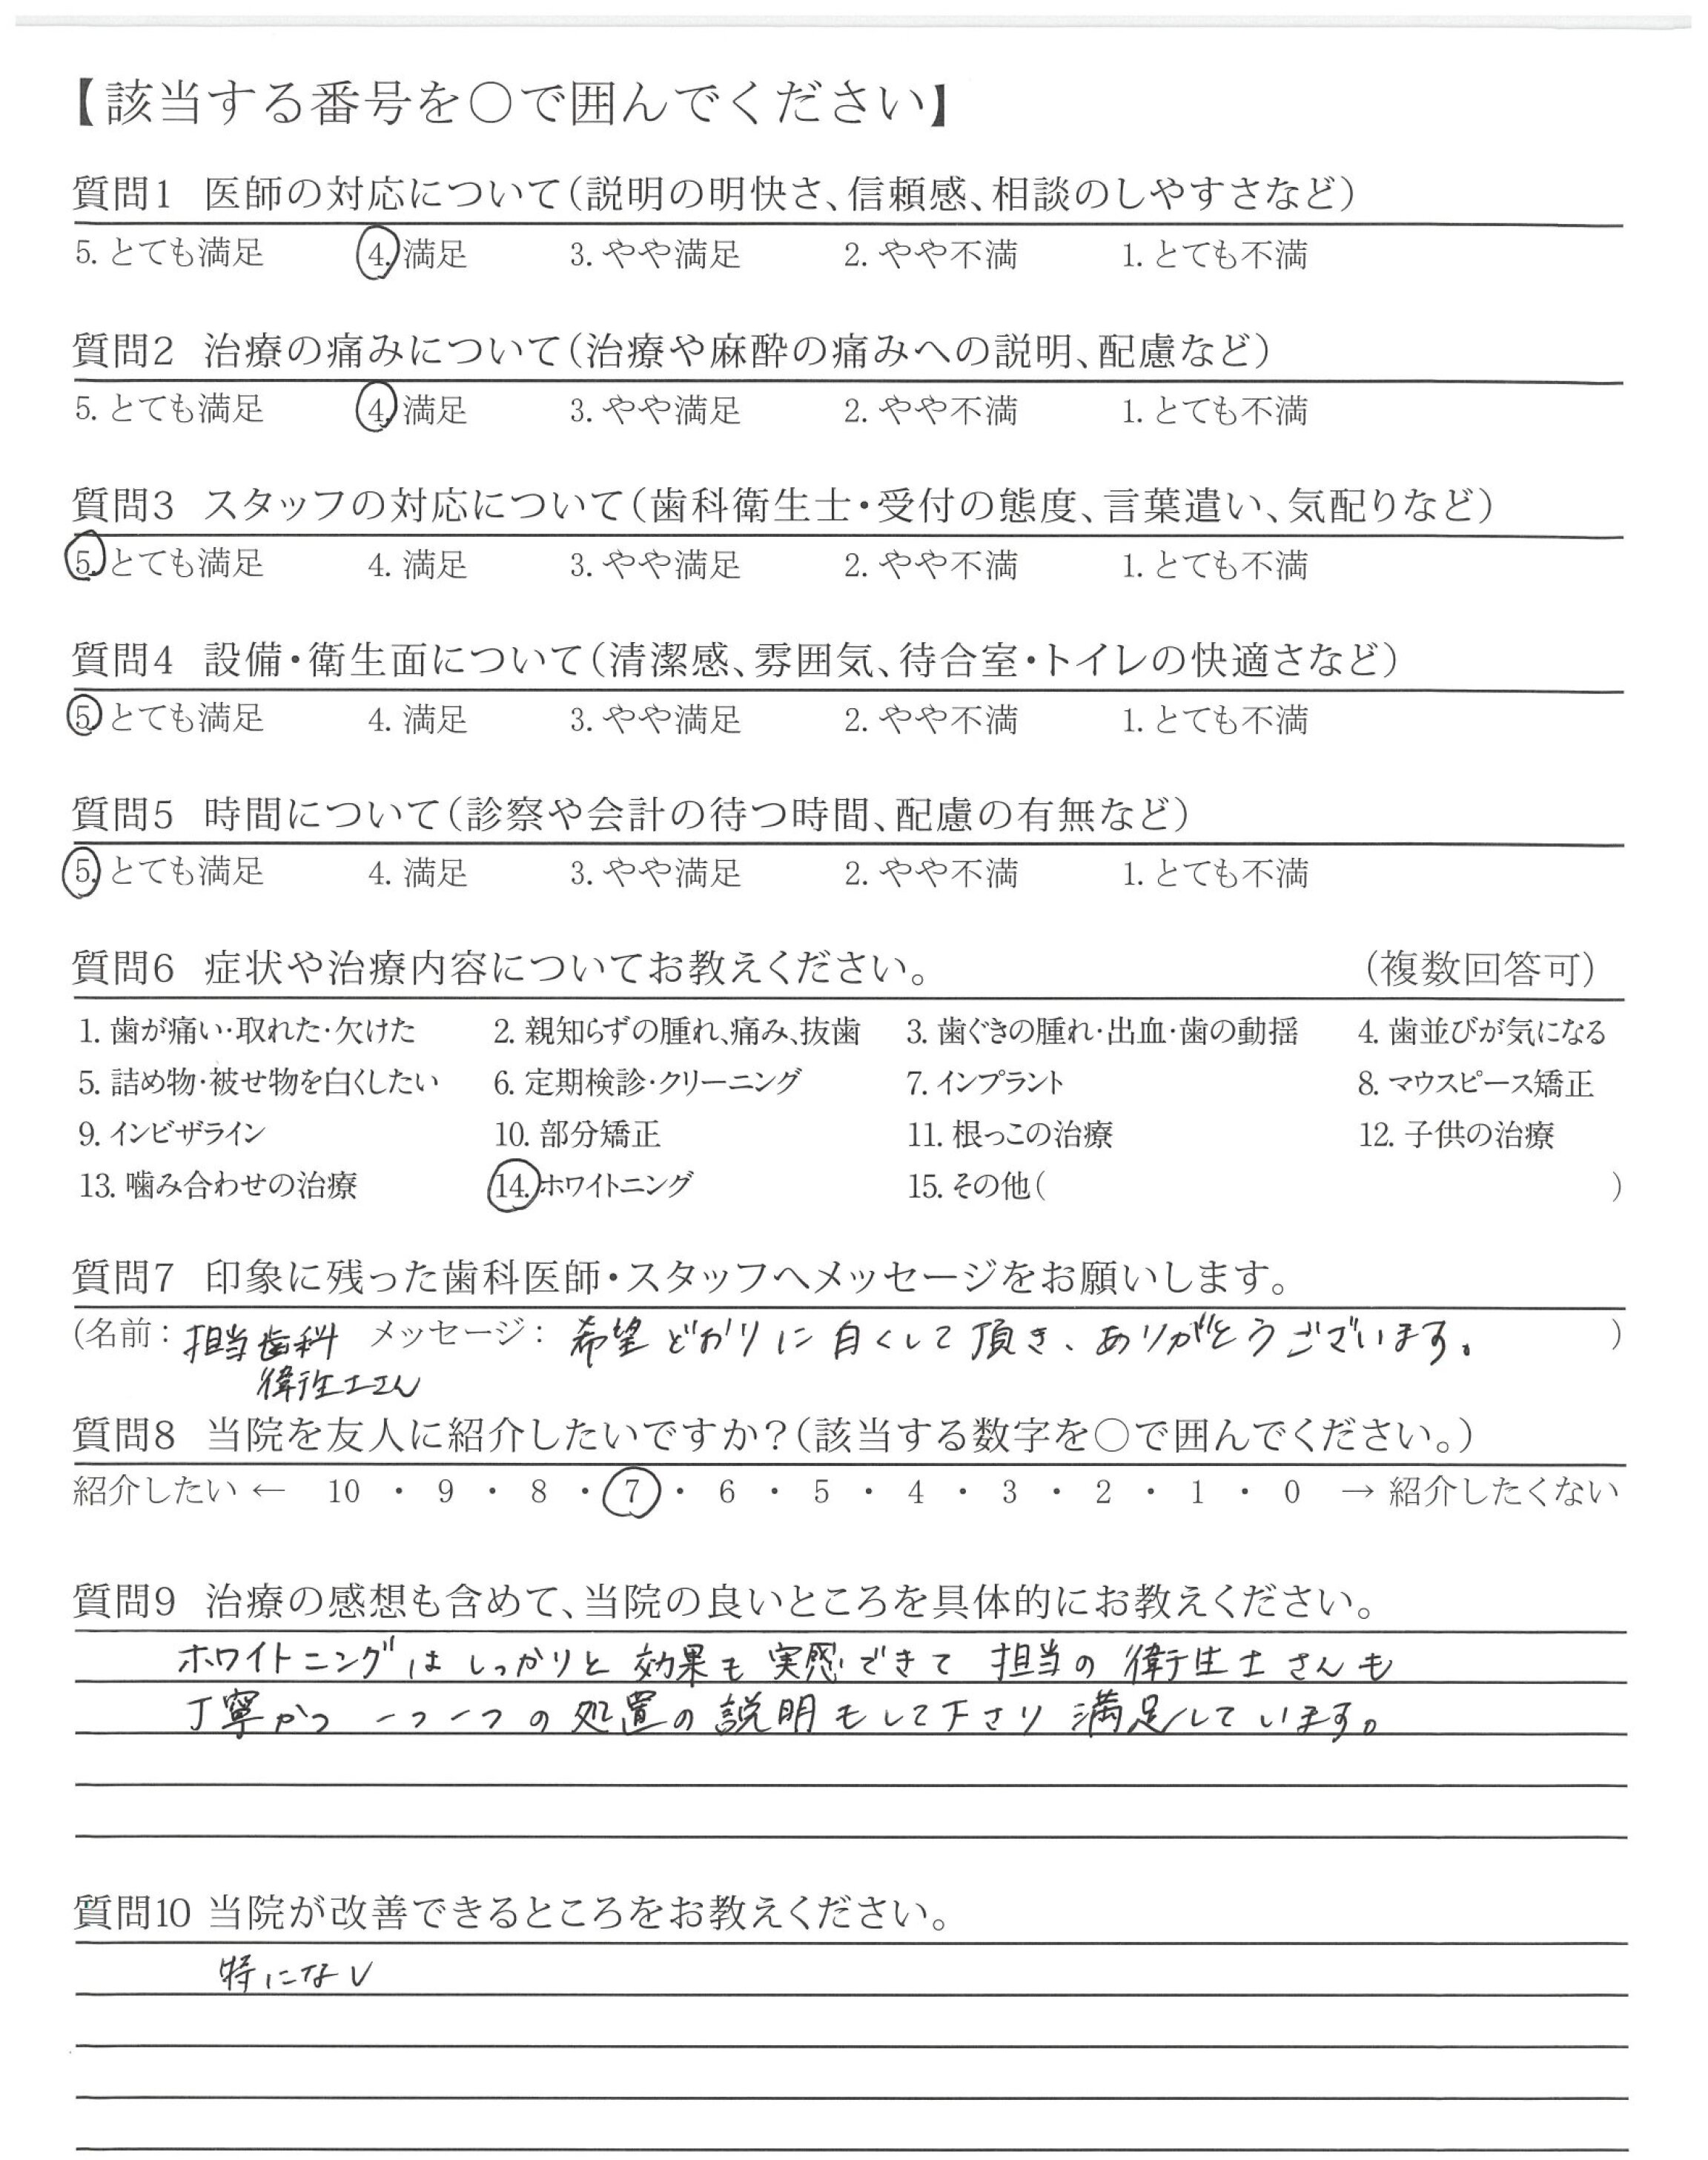 【該当する番号を○で囲んでください】
質問1 医師の対応について(説明の明快さ、信頼感、相談のしやすさなど)
5. とても満足 4. 満足 3. やや満足 2. やや不満 1. とても不満
質問2 治療の痛みについて(治療や麻酔の痛みへの説明、配慮など)
5. とても満足 4. 満足 3. やや満足 2. やや不満 1. とても不満
質問3 スタッフの対応について(歯科衛生士・受付の態度、言葉遣い、気配りなど)
5. とても満足 4. 満足 3. やや満足 2. やや不満 1. とても不満
質問4 設備・衛生面について(清潔感、雰囲気、待合室・トイレの快適さなど)
5. とても満足 4. 満足 3. やや満足 2. やや不満 1. とても不満
質問5 時間について(診察や会計の待つ時間、配慮の有無など)
5. とても満足 4. 満足 3. やや満足 2. やや不満 1. とても不満
質問6 症状や治療内容についてお教えください。 (複数回答可)
1. 歯が痛い・取れた・欠けた 2. 親知らずの腫れ、痛み、抜歯 3. 歯ぐきの腫れ・出血・歯の動揺 4. 歯並びが気になる
5. 詰め物・被せ物を白くしたい 6. 定期検診・クリーニング 7. インプラント 8. マウスピース矯正
9. インビザライン 10. 部分矯正 11. 根っこの治療 12. 子供の治療
13. 噛み合わせの治療 14. ホワイトニング 15. その他( )
質問7 印象に残った歯科医師・スタッフへメッセージをお願いします。
(名前: 担当歯科 メッセージ: 希望どおりに白くして頂き、ありがとうございます。 )
衛生士さん
質問8 当院を友人に紹介したいですか?(該当する数字を○で囲んでください。)
紹介したい ← 10 ・ 9 ・ 8 ・ 7 ・ 6 ・ 5 ・ 4 ・ 3 ・ 2 ・ 1 ・ 0 → 紹介したくない
質問9 治療の感想も含めて、当院の良いところを具体的にお教えください。
ホワイトニングはしっかりと効果も実感できて担当の衛生士さんも
丁寧かつ一つ一つの処置の説明もして下さり満足しています。
質問10 当院が改善できるところをお教えください。
特になし